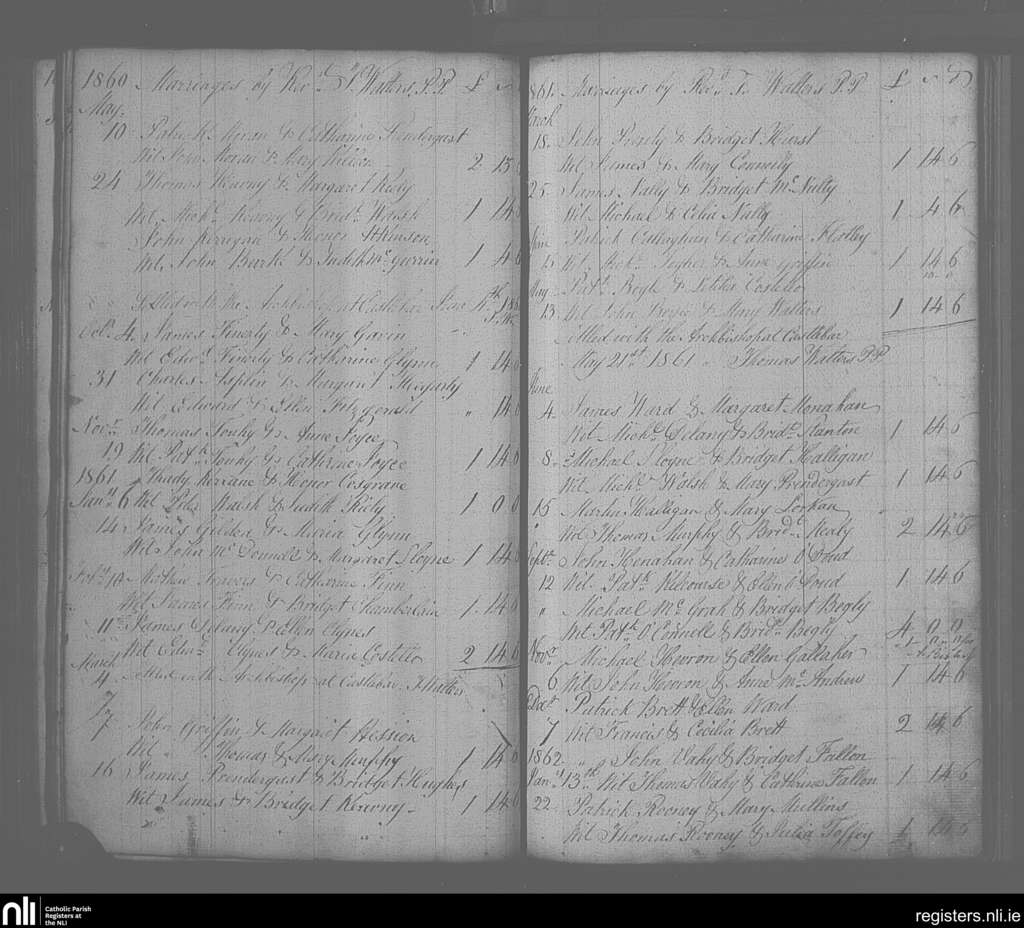 1860 Marriages by Revd T. Watters, P.P. £
May
10 Patrick Moran & Catharine Prendergast
Wit John Moran & Mary 2 15
24 Thomas Kearny & Margaret Kiely
Wit. Michl Kearny & Bridt Walsh 1 14 6
John Kerrigan & Honor Atkinson
Wit. John Burke & Judith 1 4 6
Settled with the Archbishop at Castlebar
Octr 4 James Finerty & Mary Gavin
Wit Edwd Finerty & Catharine Glynn 1 14 6
31 Charles Asplin & Margaret Hegarty
Wit Edward & Ellen Fitzgerald " 14 6
Novr Thomas Touhy & Anne Joyce
19 Wit Patk Touhy & Catherine Joyce 1 14 6
1861 Thady Kerrane & Honor Cosgrave
Jany 6 Wit Peter Walsh & Judith Kiely 1 0 0
14 James Gildea & Maria Glynn
Wit John McDonnell & Margaret Sloyne 1 14 6
Feby 10 Mathew & Catharine Finn
Wit James Finn & Bridget Chamberlain 1 14 6
11 James Delany & Ellen Clynes
Wit Edwd Clynes & Maria Costello 2 14 6
March
4 Settled with Archbishop at Castlebar. T. Watters
7 John Griffin & Margaret Hession
Wit Thomas & Mary Murphy 1 14 6
16 James Prendergast & Bridget Hughes
Wit James & Bridget Kearny 1 14 6
1861 Marriages by Revd T. Watters P.P £
March
18 John Prendy & Bridget Hurst
Wit James & Mary Connelly 1 14 6
25 James Nally & Bridget McNally
Wit Michael & Celia Nally 1 4 6
Patrick Callaghan & Catharine Flatley
15 Wit. Michl & Anne Griffin 1 14 6
May Patk Boyle & Costello
13 Wit John Boyle & Mary Watters 1 14 6
Settled with the Archbishop at Castlebar
May 21st 1861 Thomas Watters P.P
June
4 James Ward & Margaret Monahan
Wit Michl Delany & Bridt Stanton 1 14 6
8 Michael Sloyne & Bridget Halligan
Wit Michl Walsh & Mary Prendergast 1 14 6
15 Martin Halligan & Mary Lorkan
" Wit Thomas Murphy & Bridt Healy 2 14 6
Septr John Monahan & Catharine O'Doud
12 Wit Patk & Ellen O'Doud 1 14 6
" Michael McGrah & Bridget Begly
Wit Patk O'Connell & Bridt Begly 4 0 0
Novr Michael Hevron & Ellen Gallaher
6 Wit John Hevron & Anne McAndrew 1 14 6
Decr Patrick Brett & Ellen Ward
7 Wit Francis & Cecilia Brett 2 14 6
1862 " John Vahy & Bridget Fallon
Jany 13th Wit Thomas Vahy & Catherine Fallon 1 14 6
22 Patrick Rooney & Mary Mullins
Wit Thomas Rooney & Julia Toffey 1 14 6
nli
Catholic Parish
Registers at
the NLI
registers.nli.ie